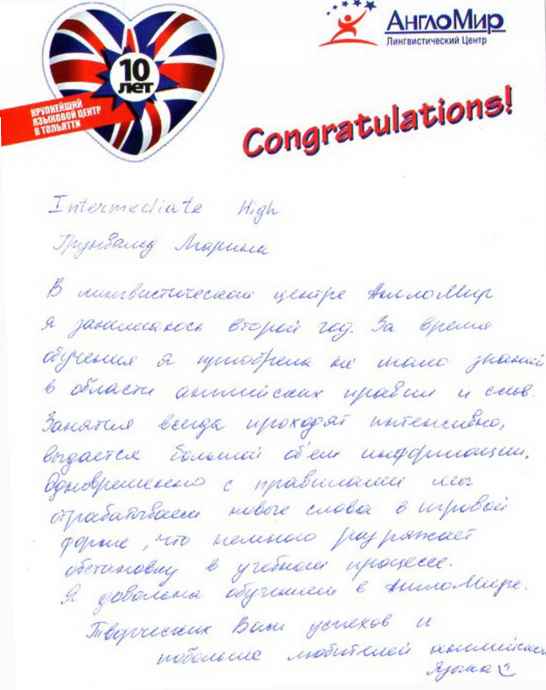 10
лет
КРУПНЕЙШИЙ
ЯЗЫКОВОЙ ЦЕНТР
В ТОЛЬЯТТИ
АнглоМир
Лингвистический Центр
Congratulations!
Intermediate High
Марина
В лингвистическом центре АнглоМир
я занимаюсь второй год. За время
обучения я приобрела не мало знаний
в области английских правил и слов.
Занятия всегда проходят интенсивно,
выдается большой объем информации.
Одновременно с правилами мы
отрабатываем новые слова в игровой
форме, что немного разряжает
обстановку в учебном процессе.
Я довольна обучением в АнглоМире.
Творческих Вам успехов и
побольше любителей английского
языка